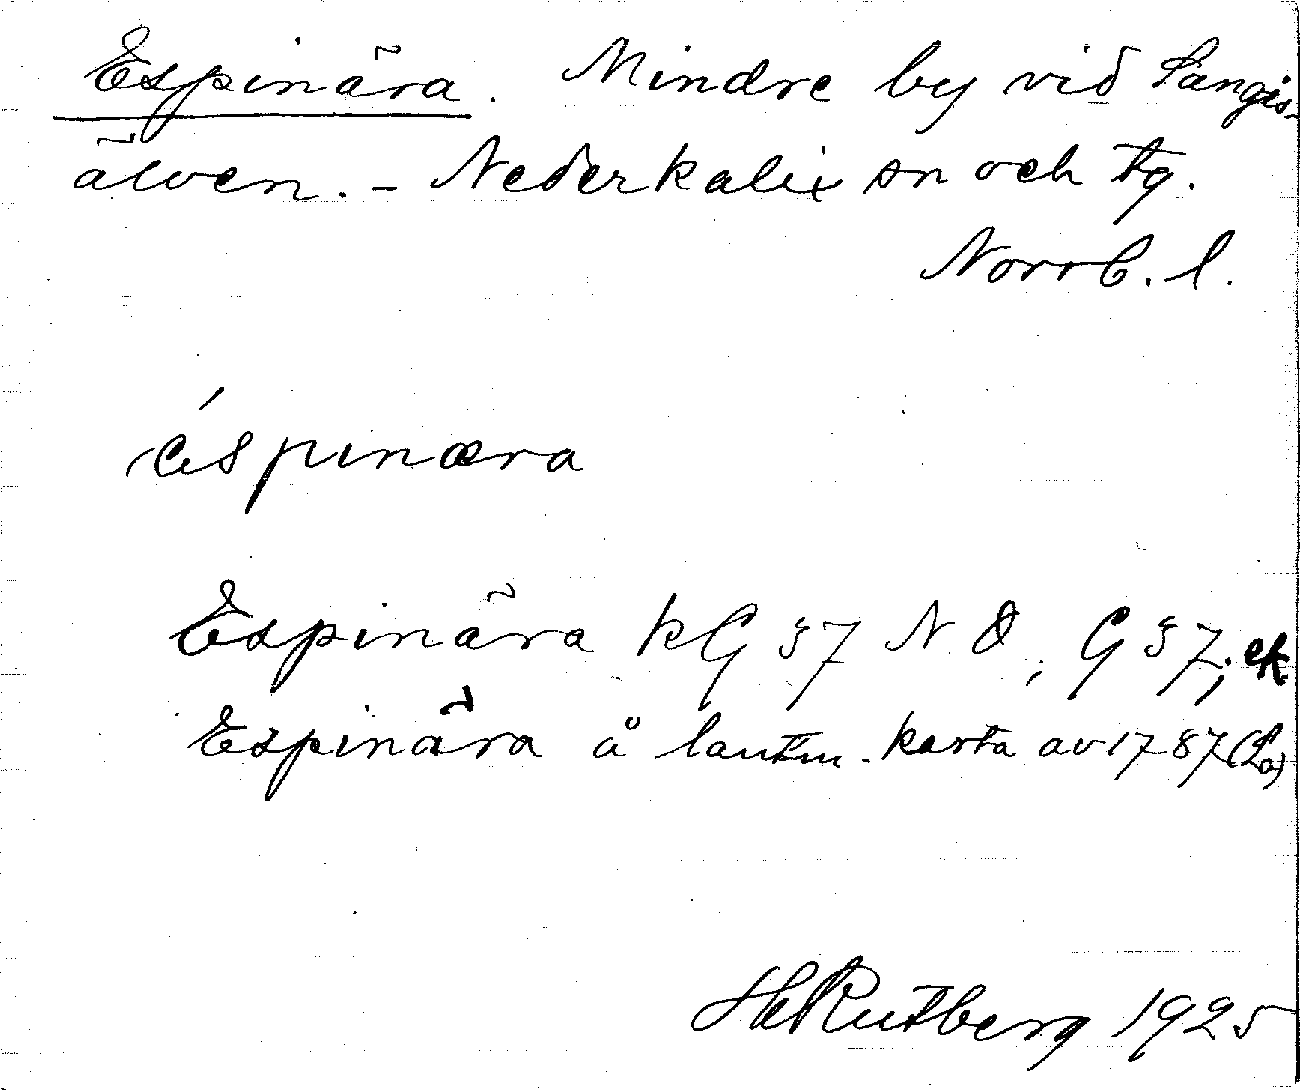 Espinära. Mindre by vid Sangis-
älven. – Nederkalix sn och tg.
Norrb. l.
éspinæra
Espinära kG 37 N.O., G 37; ek.
Espinära å lantm. karta av 1787 (La)
H Rutberg 1925